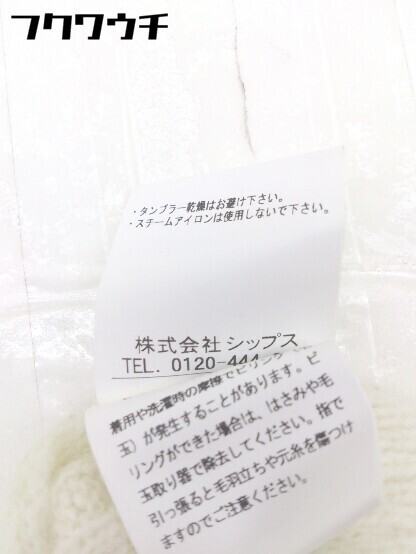 フクワウチ
・タンブラー乾燥はお避け下さい。
・スチームアイロンは使用しないで下さい。
株式会社 シップス
TEL. 0120-444
着用や洗濯時の摩擦でピリング
玉）が発生することがあります。ピ
リングができた場合は、はさみや毛
玉取り器で除去してください。指で
引っ張ると毛羽立ちや元糸を傷つけ
ますのでご注意ください。